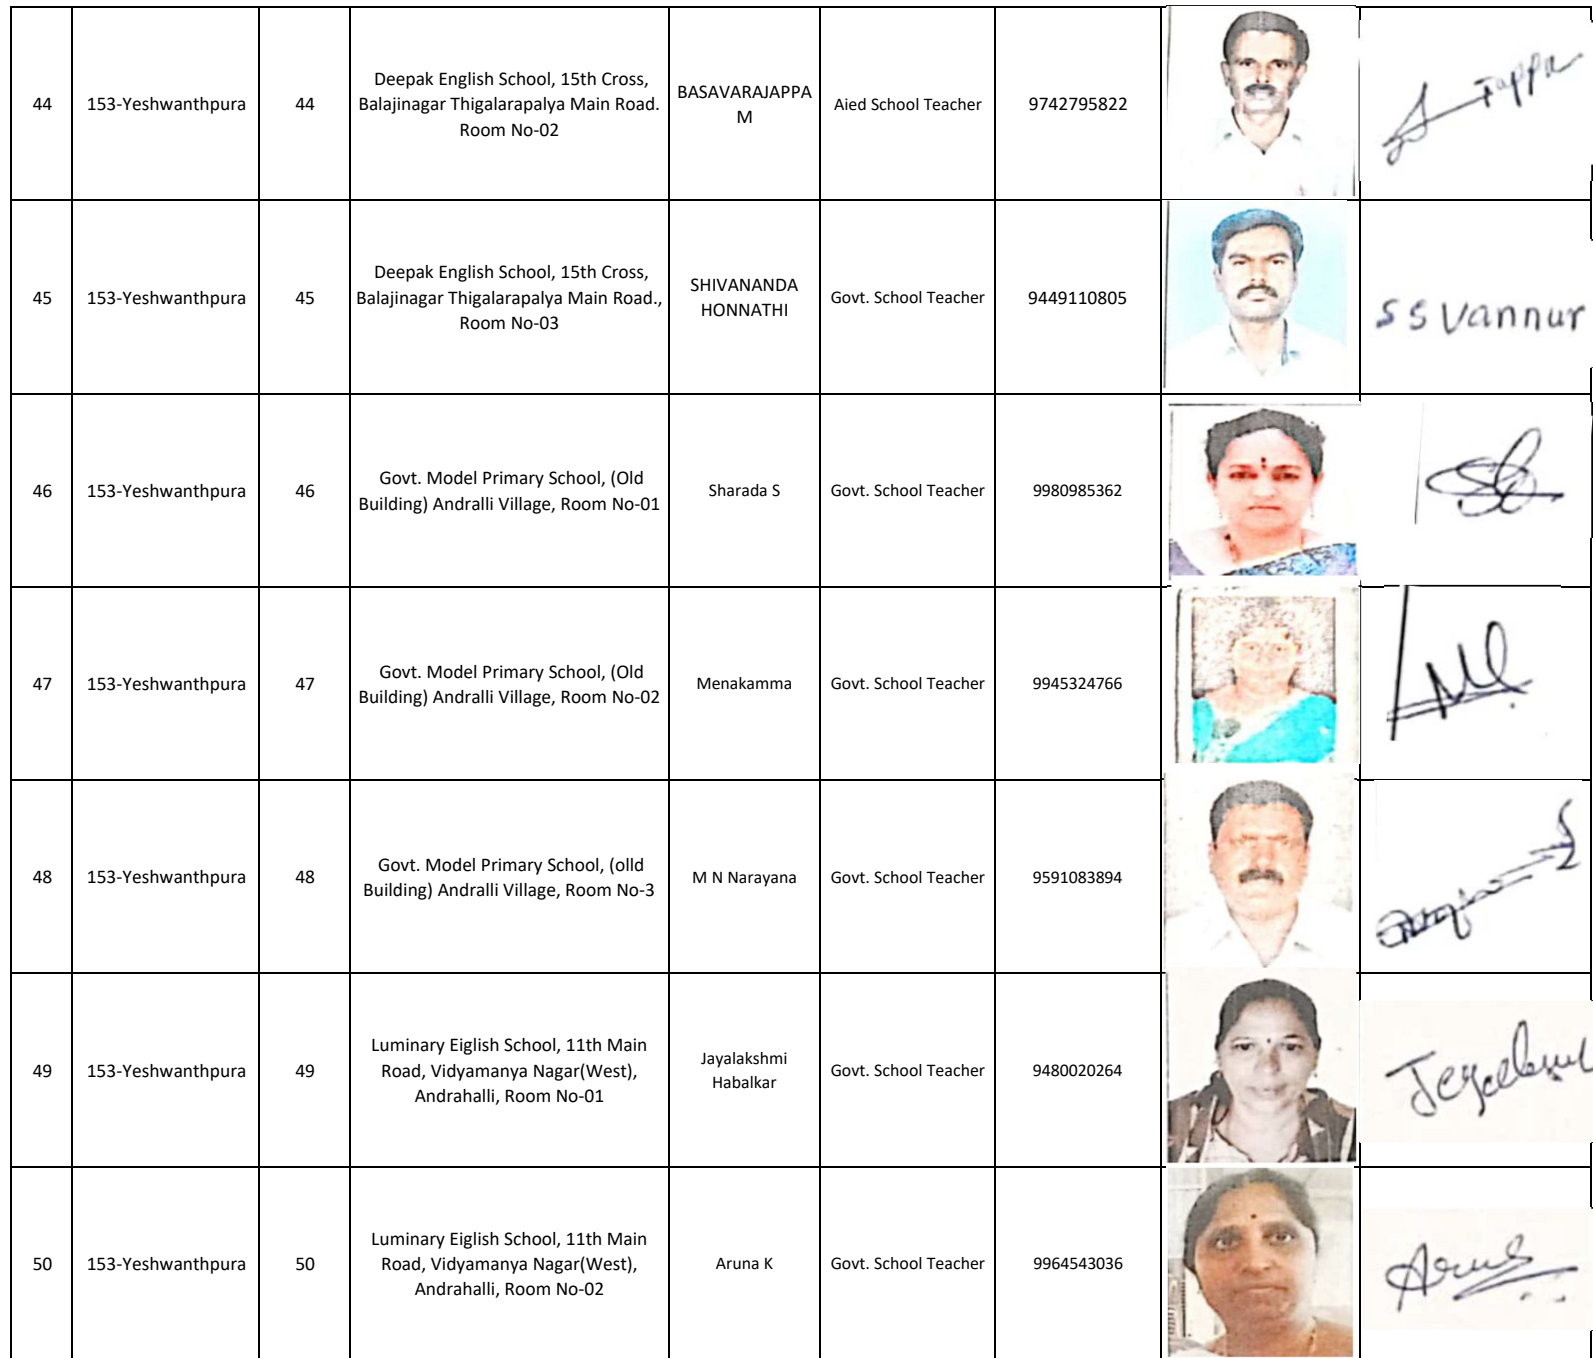 44
153-Yeshwanthpura
44
Deepak English School, 15th Cross,
Balajinagar Thigalarapalya Main Road.
Room No-02
BASAVARAJAPPA
M
Aied School Teacher
9742795822
45
153-Yeshwanthpura
45
Deepak English School, 15th Cross,
Balajinagar Thigalarapalya Main Road.,
Room No-03
SHIVANANDA
HONNATHI
Govt. School Teacher
9449110805
S S Vannur
46
153-Yeshwanthpura
46
Govt. Model Primary School, (Old
Building) Andralli Village, Room No-01
Sharada S
Govt. School Teacher
9980985362
47
153-Yeshwanthpura
47
Govt. Model Primary School, (Old
Building) Andralli Village, Room No-02
Menakamma
Govt. School Teacher
9945324766
48
153-Yeshwanthpura
48
Govt. Model Primary School, (olld
Building) Andralli Village, Room No-3
M N Narayana
Govt. School Teacher
9591083894
49
153-Yeshwanthpura
49
Luminary Eiglish School, 11th Main
Road, Vidyamanya Nagar(West),
Andrahalli, Room No-01
Jayalakshmi
Habalkar
Govt. School Teacher
9480020264
50
153-Yeshwanthpura
50
Luminary Eiglish School, 11th Main
Road, Vidyamanya Nagar(West),
Andrahalli, Room No-02
Aruna K
Govt. School Teacher
9964543036